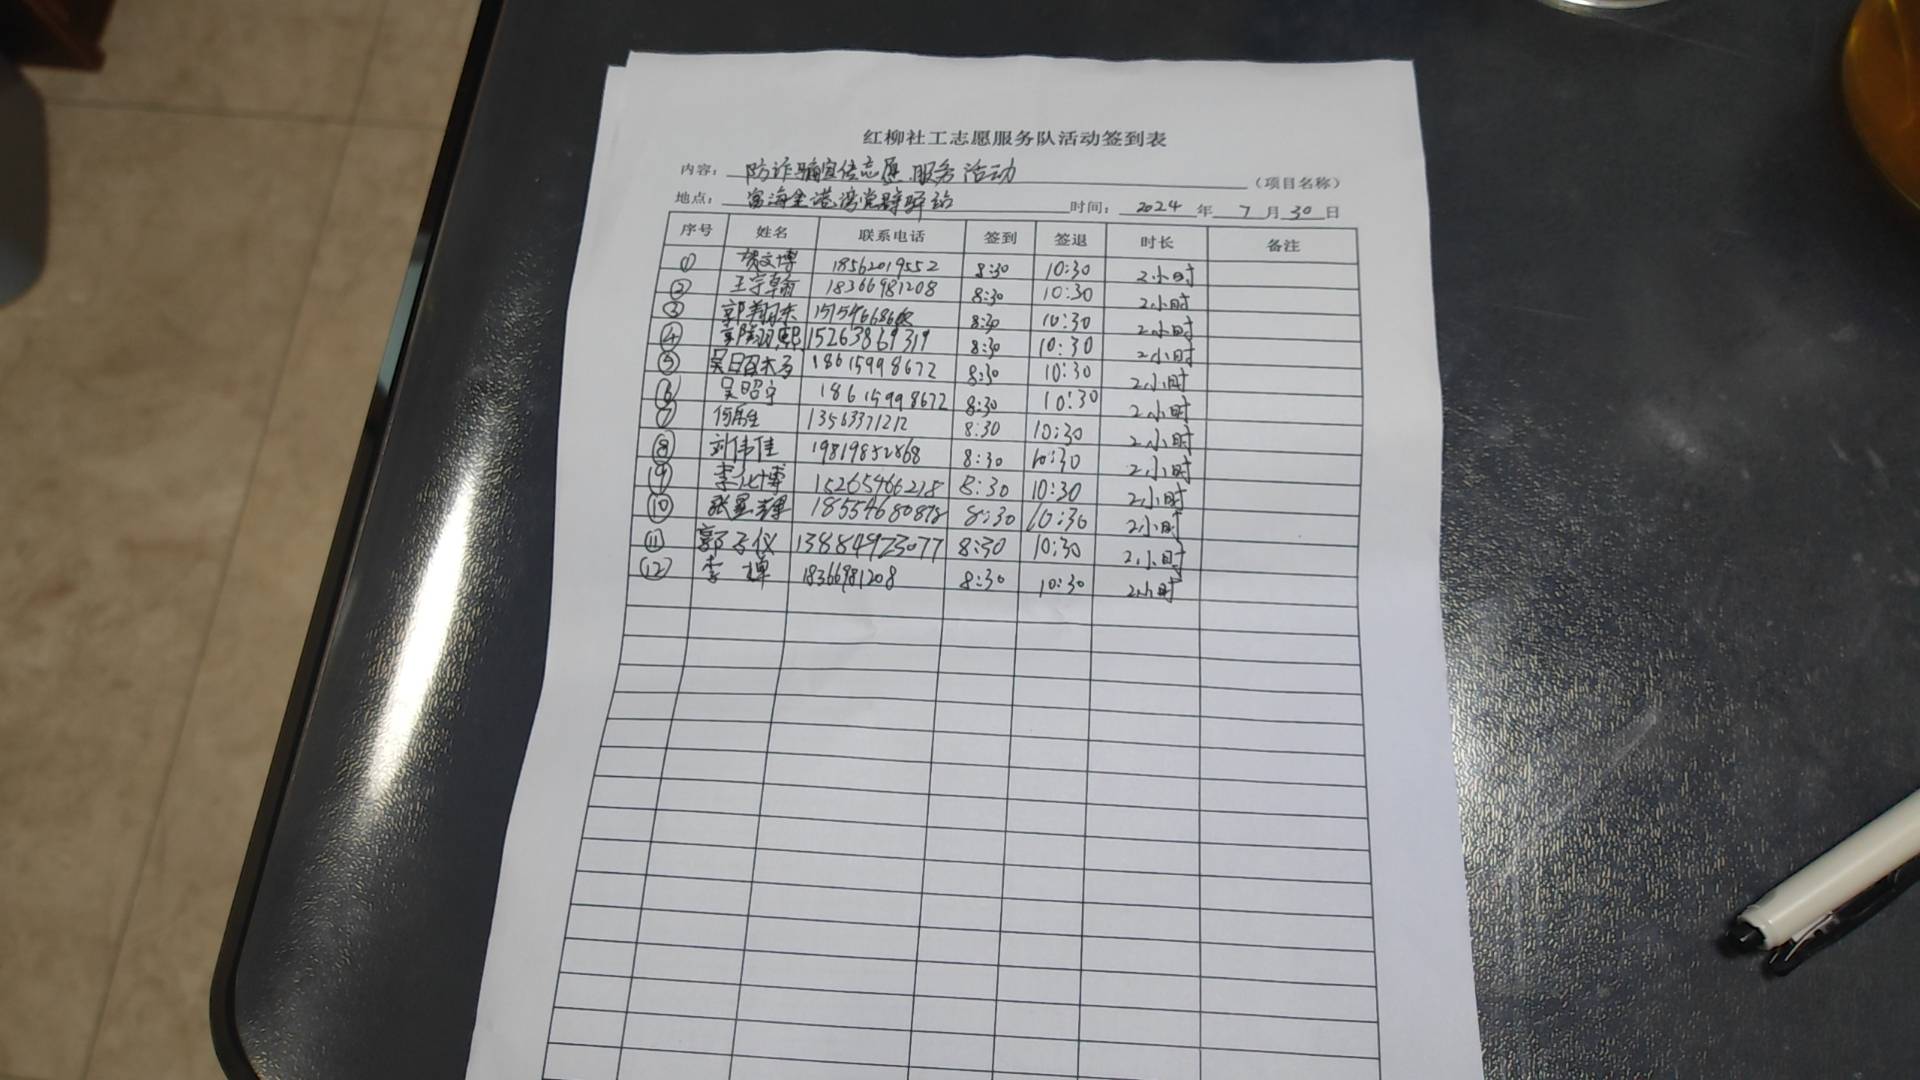 红柳社工志愿服务队活动签到表
内容：防诈骗宣传志愿服务活动（项目名称）
地点：富海金港湾党群驿站 时间：2024年7月30日
序号 姓名 联系电话 签到 签退 时长 备注
① 文博 18562019552 8:30 10:30 2小时
② 王宇翰 18366981208 8:30 10:30 2小时
③ 8:30 10:30 2小时
④ 15263869319 8:30 10:30 2小时
⑤ 18615998672 8:30 10:30 2小时
⑥ 吴昭宁 18615998672 8:30 10:30 2小时
⑦ 13563371212 8:30 10:30 2小时
⑧ 刘伟佳 19819852868 8:30 10:30 2小时
⑨ 15265466218 8:30 10:30 2小时
⑩ 18554680878 8:30 10:30 2小时
⑪ 郭子仪 13884923077 8:30 10:30 2小时
⑫ 18366981208 8:30 10:30 2小时